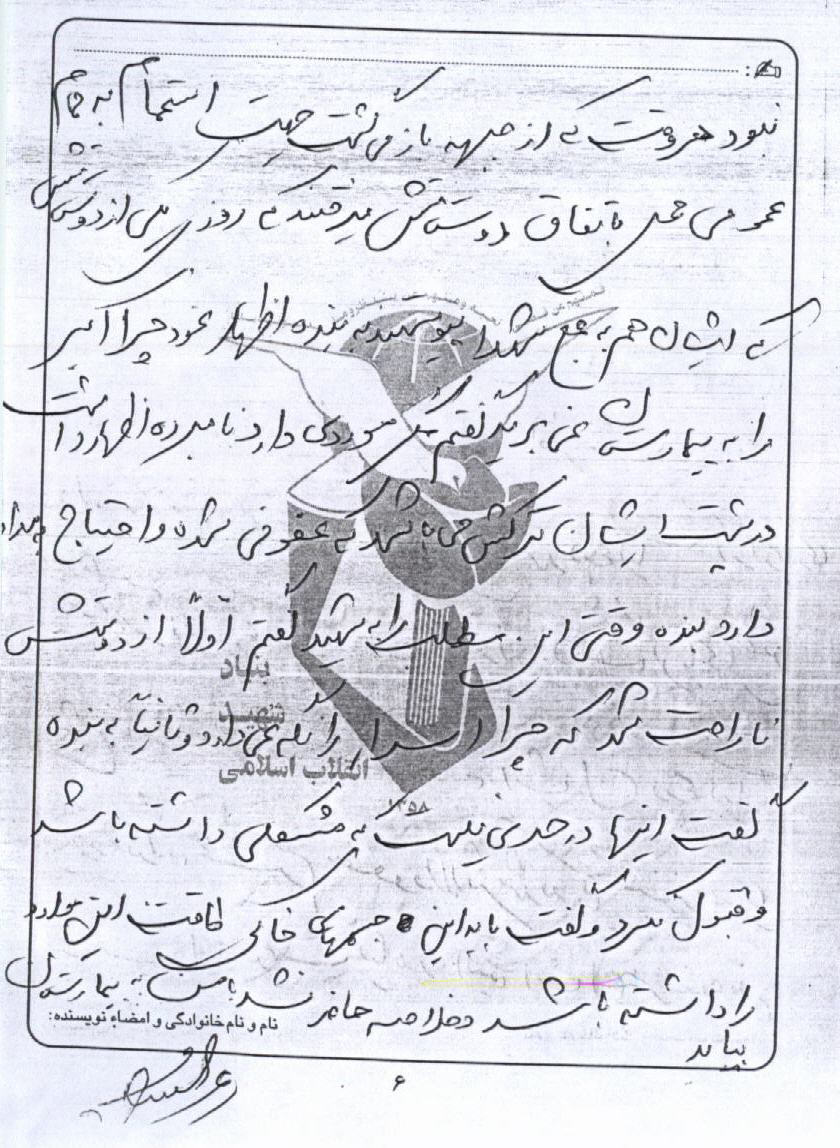 نبود هر وقت که از جبهه باز می گشت جهت استحمام به حمام
عمومی محل باتفاق دوستانش میرفتند که روزی یکی از دوستانش
که ایشان هم به جمع شهدا پیوستند به بنده اظهار نمود چرا اکبر
را به بیمارستان نمی برید گفتم مگر موردی دارد نامبرده اظهار داشت
در پشت ایشان ترکش می باشد که عفونی شده و احتیاج به مداوا
دارد بنده وقتی این مطلب را به شهید گفتم اولاً از دوستش
ناراحت شد که چرا اسرار را نگه نمی دارد و ثانیاً به بنده
گفت اینها در حدی نیست که مشکلی داشته باشد
و قبول نکرد و گفت باید این جسمهای خاکی طاقت این موارد
را داشته باشد و خلاصه حاضر نشد با من به بیمارستان
بیاید
نام و نام خانوادگی و امضاء نویسنده:
۶
بنیاد
شهید
انقلاب اسلامی
۱۳۵۸